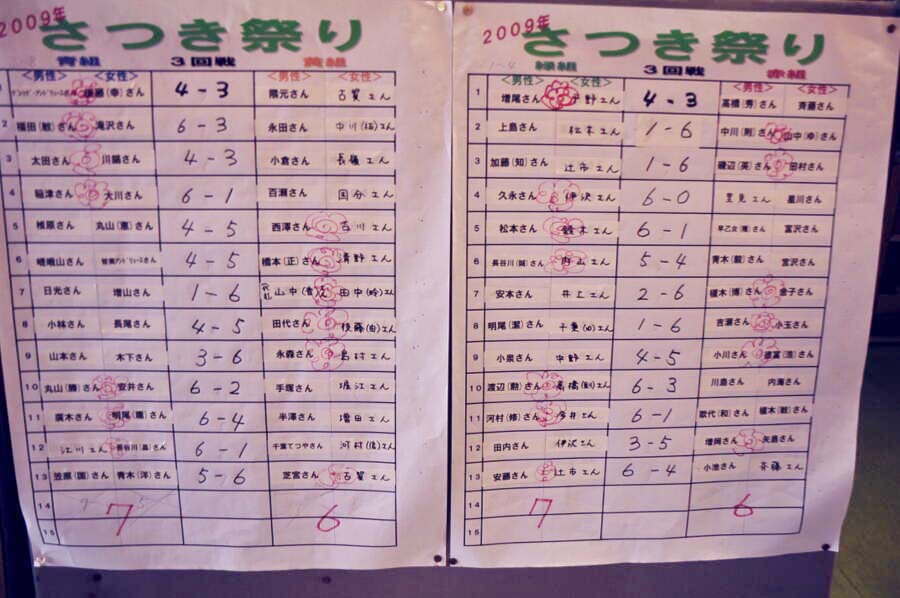 2009年
さつき祭り
青組 3回戦 黄組
<男性> <女性> <男性> <女性>
後藤(幸)さん 4-3 隈元さん 古賀さん
2 福田(敏)さん 滝沢さん 6-3 永田さん 中川(裕)さん
3 太田さん 川腸さん 4-3 小倉さん 長藤さん
4 稲津さん 大川さん 6-1 百瀬さん 国分さん
5 梹原さん 丸山(恵)さん 4-5 西澤さん 吉川さん
6 嵯峨山さん 4-5 橋本(正)さん 清野さん
7 日光さん 増山さん 1-6 山中 田中(時)さん
8 小林さん 長尾さん 4-5 田代さん 後藤(由)さん
9 山本さん 木下さん 3-6 永森さん 島村さん
10 丸山(勝)さん 安井さん 6-2 手塚さん 堀江さん
11 廣木さん 明尾(鷹)さん 6-4 半澤さん 増田さん
12 江川さん 長谷川(昌)さん 6-1 千葉てつやさん 河村(信)さん
13 笠原(国)さん 青木(洋)さん 5-6 芝宮さん 古賀さん
14
15
7 6
2009年
さつき祭り
緑組 3回戦 赤組
<男性> <女性> <男性> <女性>
1 増尾さん 中野さん 4-3 高橋(秀)さん 斉藤さん
2 上島さん 松本さん 1-6 中川(剛)さん 山中(ゆ)さん
3 加藤(知)さん 辻市さん 1-6 磯辺(英)さん 田村さん
4 久永さん 伊沢さん 6-0 里見さん 星川さん
5 松本さん 鈴木さん 6-1 早乙女 さん 富沢さん
6 長谷川(誠)さん 内山さん 5-4 青木(毅)さん 宮沢さん
7 安本さん 井上さん 2-6 植木(博)さん 金子さん
8 明尾(潔)さん 千葉 さん 1-6 吉瀬さん 小玉さん
9 小泉さん 中野さん 4-5 小川さん 徳富(浩)さん
10 渡辺(勲)さん 高橋 さん 6-3 川島さん 内海さん
11 河村(修)さん 今井さん 6-1 歌代(和)さん 植木(敦)さん
12 田内さん 伊沢さん 3-5 増岡さん 矢島さん
13 安藤さん 辻市さん 6-4 小池さん 斉藤さん
14
15
7 6